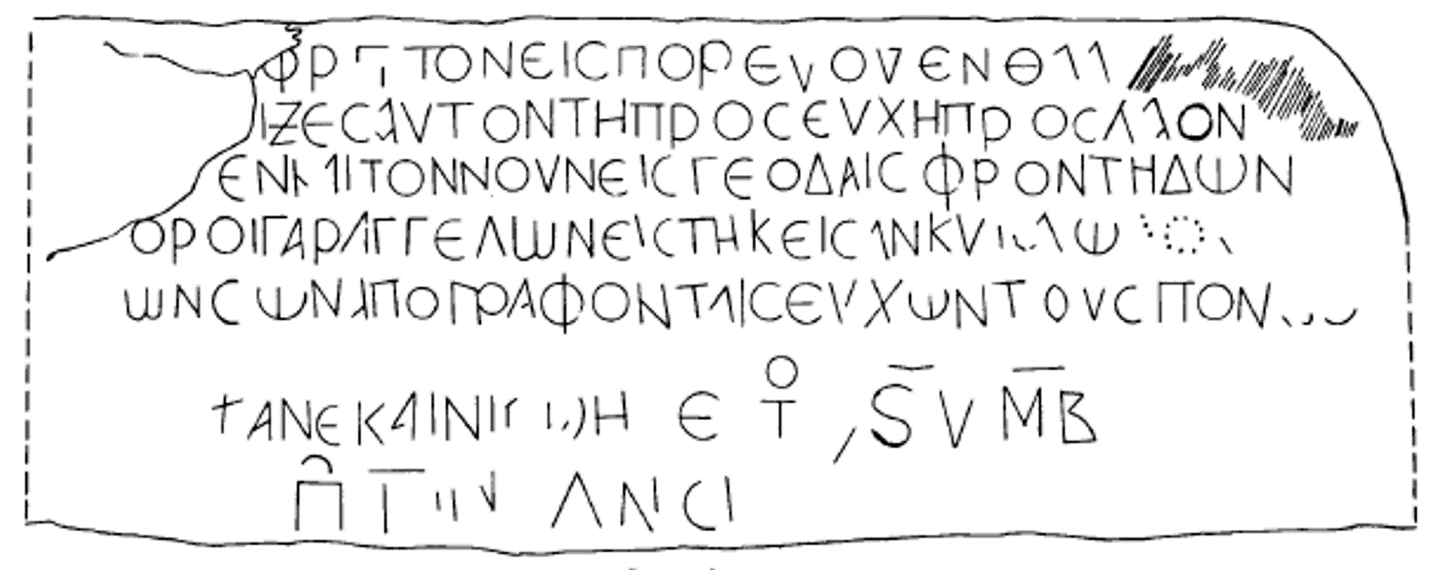 ΦΡ ΤΟΝΕΙϹΠΟΡΕVΟVΕΝΘ
ΙΖΕϹΑVΤΟΝΤΗΠΡΟϹΕVΧΗΠΡΟϹΛΑΟΝ
ΕΝΚΑΙΤΟΝΝΟVΝΕΙϹΓΕΟΔΑΙϹΦΡΟΝΤΗΔѠΝ
ΟΡΟΙΓΑΡΑΓΓΕΛѠΝΕΙϹΤΗΚΕΙϹΑΝΚV Ѡ
ѠΝϹѠΝΑΠΟΓΡΑΦΟΝΤΑΙϹΕVΧѠΝΤΟVϹΠΟΝ
†ΑΝΕΚΑΙΝΙ Η Ε Τ ͵S V ΜΒ
Π Τ ΑΝ CΙ